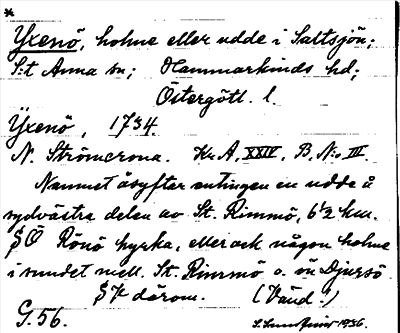 *
Yxenö, holme eller udde i Saltsjön;
S:t Anna sn; Hammarkinds hd;
Östergötl. l.
Yxenö, 1734
N. Strömcrona. Kr. A. XXIV, B. N:o III.
Namnet åsyftar antingen en udde å
sydvästra delen av St. Rimmö, 6½ km.
SO Rönö kyrka, eller ock någon holme
i sundet mell. St. Rimmö o. ön Djursö
SV därom. (Vänd!)
G. 56. 1936.